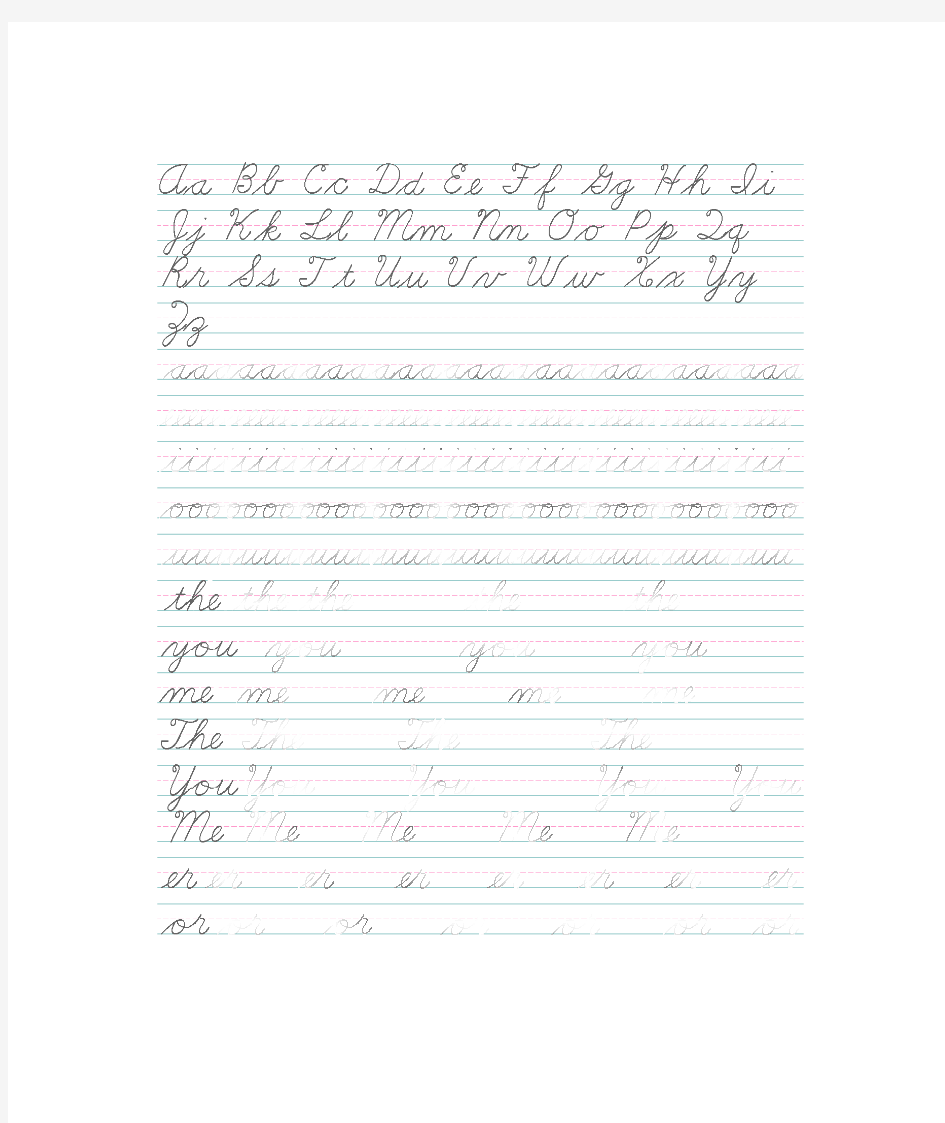 Aa Bb Cc Dd Ee Ff Gg Hh Ii
Jj Kk Ll Mm Nn Oo Pp Qq
Rr Ss Tt Uu Vv Ww Xx Yy
Zz
aa aa aa aa aa aa aa aa aa
iii iii iii iii iii iii iii iii iii
ooo ooo ooo ooo ooo ooo ooo ooo ooo
uu uu uu uu uu uu uu uu uu
the the the the the
you you you you
me me me me me
The The The The
You You You You You
Me Me Me Me Me
er er er er er er er er
or or or or or or or